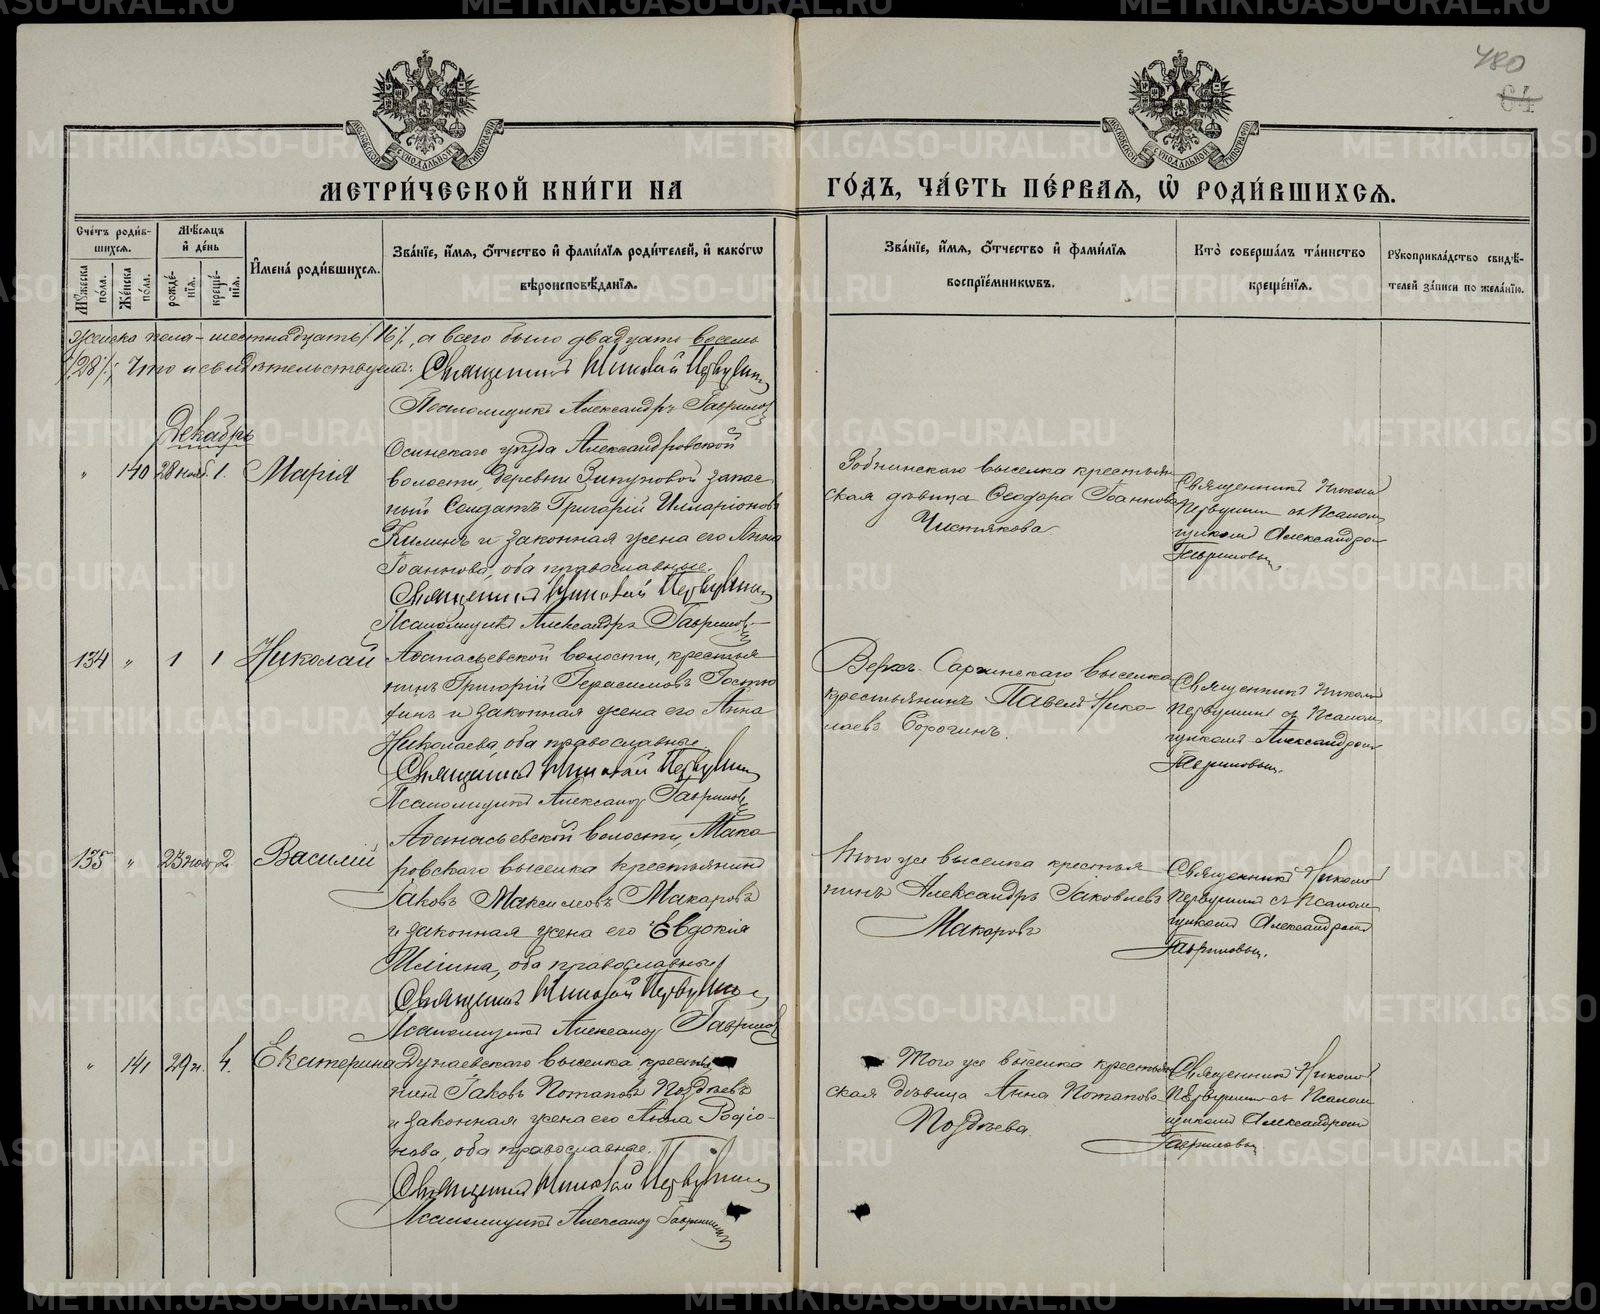 480
64
МОСКОВСКОЙ СѴНОДАЛЬНОЙ ТИПОГРАФІИ
МОСКОВСКОЙ СѴНОДАЛЬНОЙ ТИПОГРАФІИ
МЕТРИ́ЧЕСКОЙ КНИ́ГИ НА
ГО́ДЪ, ЧА́СТЬ ПЕ́РВАЯ, Ѡ҆ РОДИ́ВШИХСЯ.
Сче́тъ роди́в-
шихся.
Му́жеска по́ла.
Же́нска по́ла.
Мѣ́сяцъ и де́нь
рожде́-нїя.
креще́-нїя.
И҆мена̀ роди́вшихся.
Зва́нїе, и҆́мя, ѻ҆́тчество и҆ фами́лїя роди́телей, и҆ како́гѡ
вѣроисповѣ́данїя.
Зва́нїе, и҆́мя, ѻ҆́тчество и҆ фами́лїя
воспрїе́мникѡвъ.
Кто̀ соверша́лъ та́инство
креще́нїя.
Рꙋкоприкла́дство свидѣ́-
телей за́писи по жела́нїю.
Женска пола - шестнадцать /16/, а всего было двадцать восемь
/28/; Что и свидѣтельствуемъ: Священникъ Николай Первушинъ
Псаломщикъ Александръ Гавриловъ
Декабрь
" 140 28 нояб. 1. Марія
Осинскаго уѣзда Александровской
волости, деревни Зипуновой запас
ный Солдатъ Григорій Илларіоновъ
Килинъ и законная жена его Анна
Іоаннова, оба православные.
Священникъ Николай Первушинъ
Псаломщикъ Александръ Гавриловъ
выселка крестьян
ская дѣвица Ѳеодора Іоаннова
Чистякова.
Священникъ Николай
Первушинъ съ Псалом
щикомъ Александромъ
Гавриловымъ.
134 " 1 1 Николай
Аѳанасьевской волости, крестья
нинъ Григорій Герасимовъ
и законная жена его Анна
Николаева, оба православные
Священникъ Николай Первушинъ
Псаломщикъ Александръ Гавриловъ
Верхъ-Саргинскаго выселка
крестьянинъ Павелъ Нико-
лаевъ Сорогинъ.
Священникъ Николай
Первушинъ съ Псалом
щикомъ Александромъ
Гавриловымъ.
135 " 23 нояб. 2 Василій
Аѳанасьевской волости, Мака
ровскаго выселка крестьянинъ
Іаковъ Максимовъ Макаровъ
и законная жена его Евдокія
Иліина, оба православные
Священникъ Николай Первушинъ
Псаломщикъ Александръ Гавриловъ
Того же выселка крестья
нинъ Александръ Іаковлевъ
Макаровъ
Священникъ Николай
Первушинъ съ Псалом
щикомъ Александромъ
Гавриловымъ.
" 141 29 н. 4. Екатерина
Дунаевскаго выселка крестья
нинъ Іаковъ Потаповъ Поздѣевъ
и законная жена его Анна Родіо-
нова, оба православные.
Священникъ Николай Первушинъ
Псаломщикъ Александръ Гавриловъ
Того же выселка крестьян
ская дѣвица Анна Потапова
Поздѣева.
Священникъ Николай
Первушинъ съ Псалом
щикомъ Александромъ
Гавриловымъ
METRIKI.GASO-URAL.RU